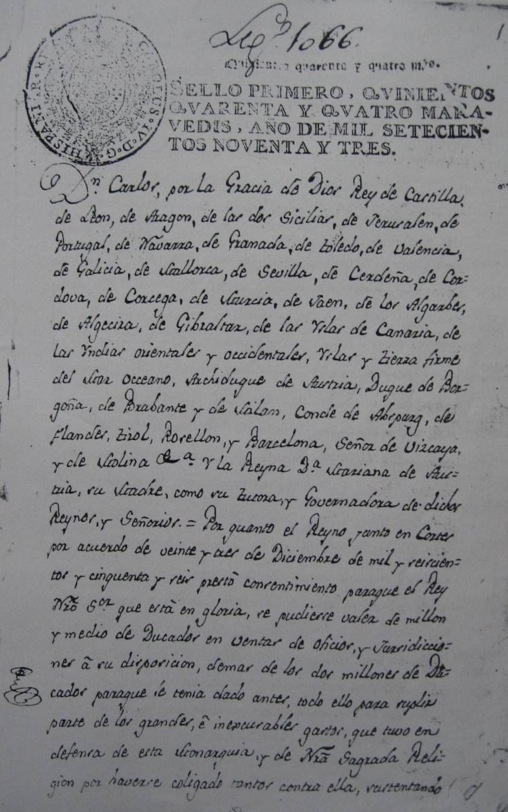 Leg.º 1066.
1
Quinientos quarenta y quatro mrs.
CAROLUS IV D. G. HISPANIAR. R.
SELLO PRIMERO, QVINIENTOS
QVARENTA Y QVATRO MARA-
VEDIS, AÑO DE MIL SETECIEN-
TOS NOVENTA Y TRES.
Dn. Carlos, por la Gracia de Dios Rey de Castilla,
de Leon, de Aragon, de las dos Sicilias, de Jerusalen, de
Portugal, de Navarra, de Granada, de toledo, de Valencia,
de Galicia, de Mallorca, de Sevilla, de Cerdeña, de Cor-
dova, de Corcega, de Murcia, de Jaen, de los Algarbes,
de Algecira, de Gibraltar, de las Yslas de Canaria, de
las Yndias orientales y occidentales, Yslas y tierra firme
del Mar Occeano, Archiduque de Austria, Duque de Bor-
goña, de Brabante y de Milan, Conde de Abspurg, de
flandes, tirol, Rosellon, y Barcelona, Señor de Vizcaya,
y de Molina &a. Y la Reyna Dª Mariana de Aus-
tria, su Madre, como su tutora, y Governadora de dichos
Reynos, y Señorios. = Por quanto el Reyno junto en Cortes
por acuerdo de veinte y tres de Diciembre de mil y seiscien-
tos y cinquenta y seis prestó consentimiento paraque el Rey
Nrō Sor que está en gloria, se pudiesse valer de millon
y medio de Ducados en ventas de oficios, y Jurisdiccio-
nes á su disposicion, demas de los dos millones de Du-
cados paraque le tenia dado antes, todo ello para suplir
parte de los grandes, é inexcusables gastos, que tuvo en
defensa de esta Monarquia, y de Nrā Sagrada Reli-
gion por haverse coligado tantos contra ella, sustentando